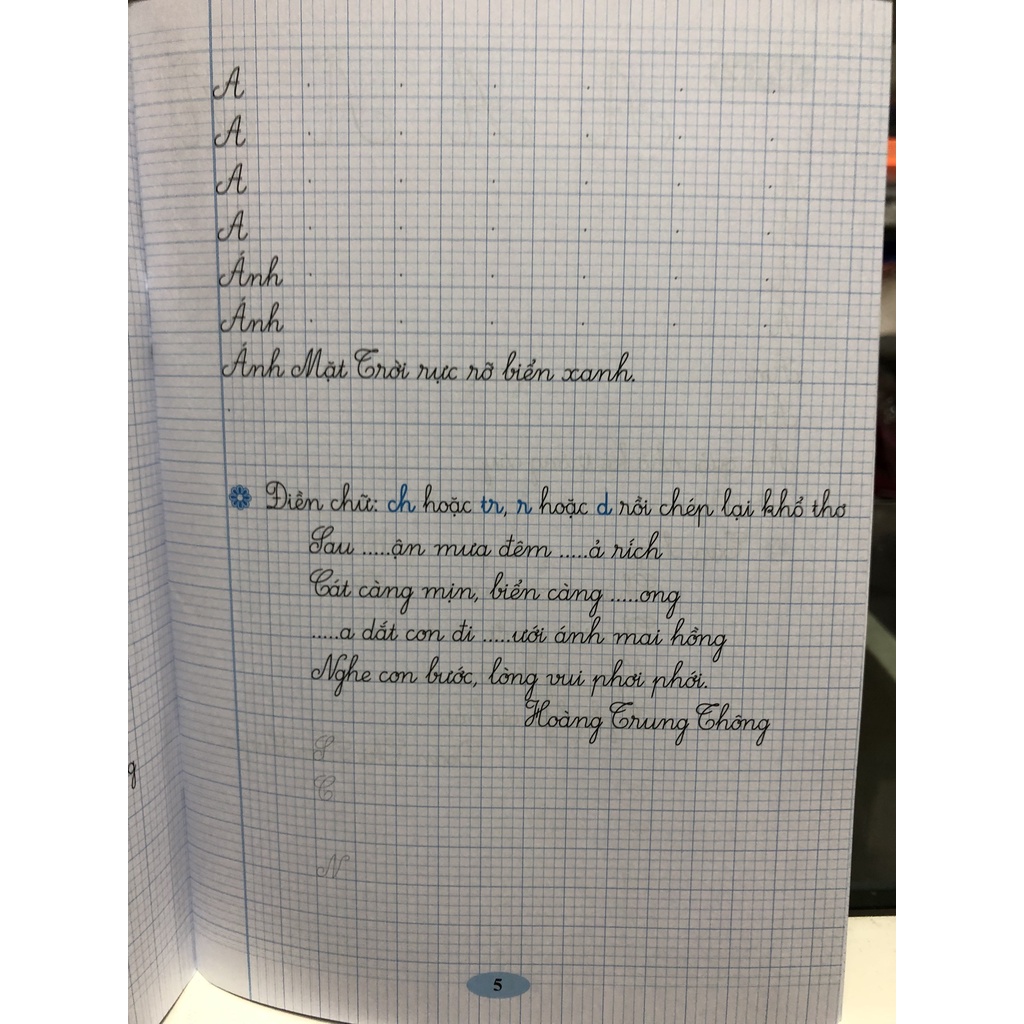 A
A
A
A
Ánh
Ánh
Ánh Mặt Trời rực rỡ biển xanh.
Điền chữ: ch hoặc tr, r hoặc d rồi chép lại khổ thơ
Sau .....ận mưa đêm .....ả rích
Cát càng mịn, biển càng .....ong
.....a dắt con đi .....ưới ánh mai hồng
Nghe con bước, lòng vui phơi phới.
Hoàng Trung Thông
S
C
N
g
5